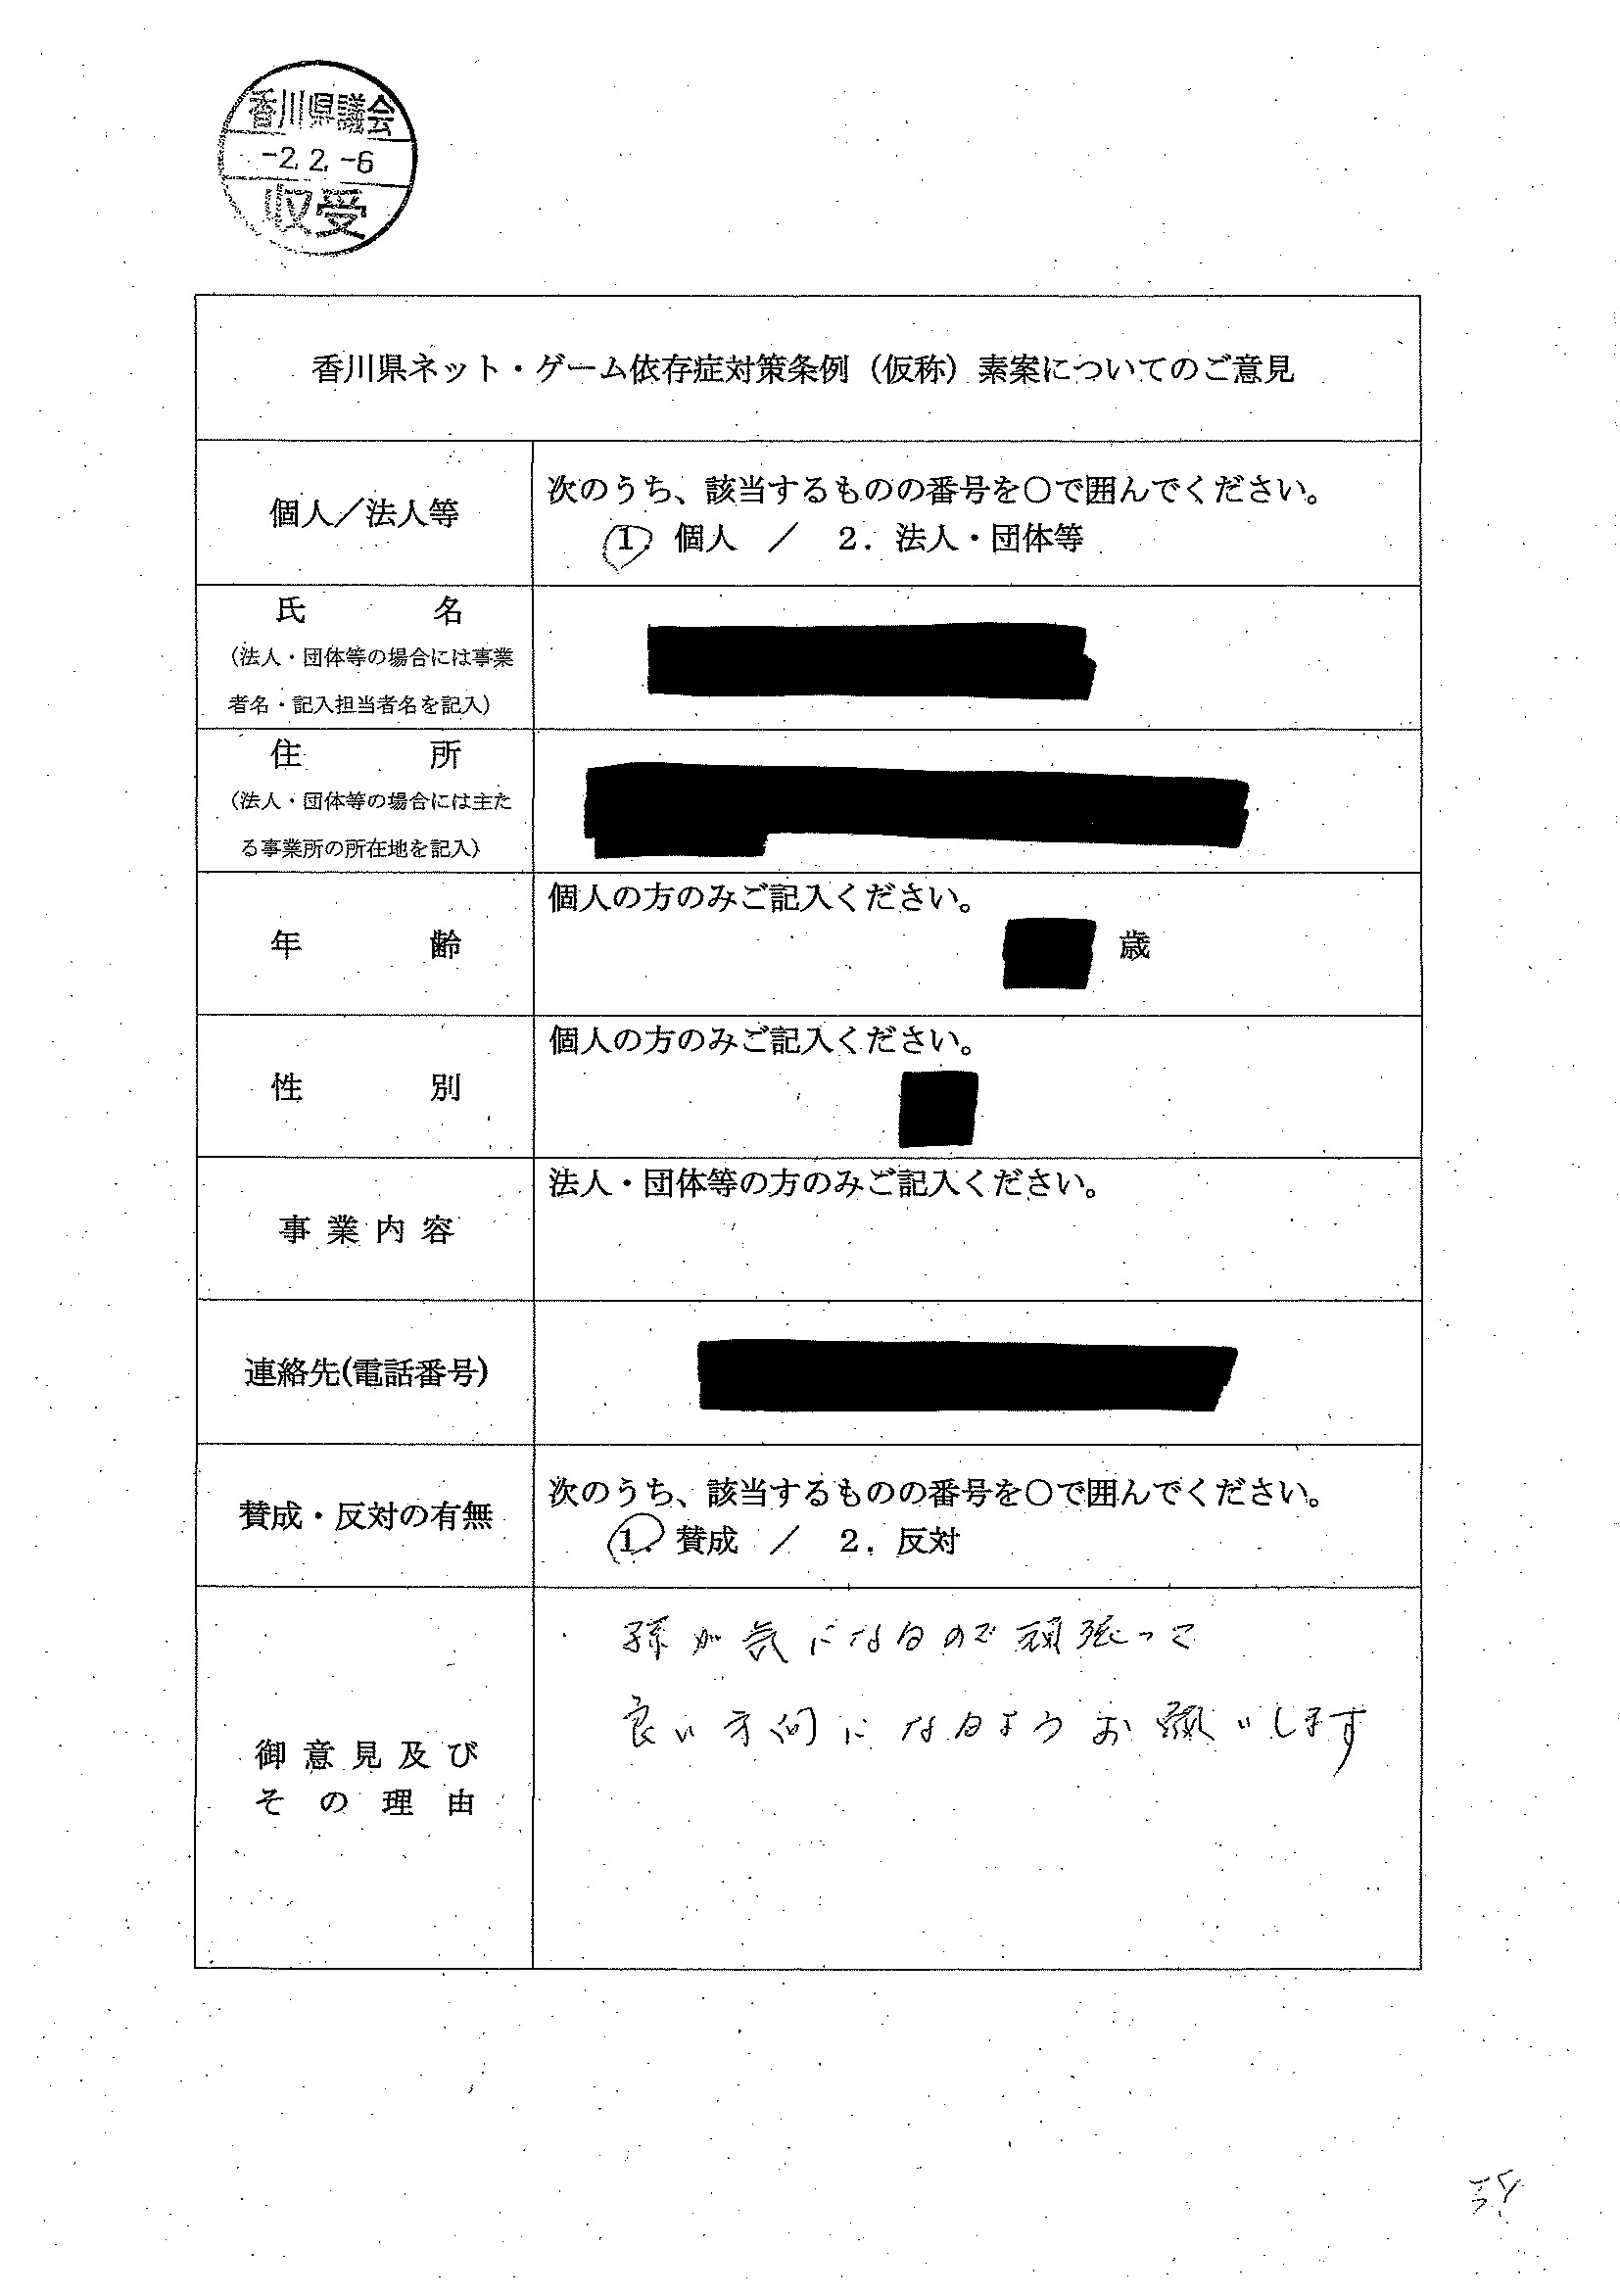 香川県議会
-2.2.-6
収受
香川県ネット・ゲーム依存症対策条例（仮称）素案についてのご意見
個人／法人等
次のうち、該当するものの番号を○で囲んでください。
1 個人 ／ 2．法人・団体等
氏 名
（法人・団体等の場合には事業
者名・記入担当者名を記入）
住 所
（法人・団体等の場合には主た
る事業所の所在地を記入）
年 齢
個人の方のみご記入ください。
歳
性 別
個人の方のみご記入ください。
事業内容
法人・団体等の方のみご記入ください。
連絡先(電話番号)
賛成・反対の有無
次のうち、該当するものの番号を○で囲んでください。
1．賛成 ／ 2．反対
御意見及び
その理由
孫が気になるので頑張って
良い方向になるようお願いします